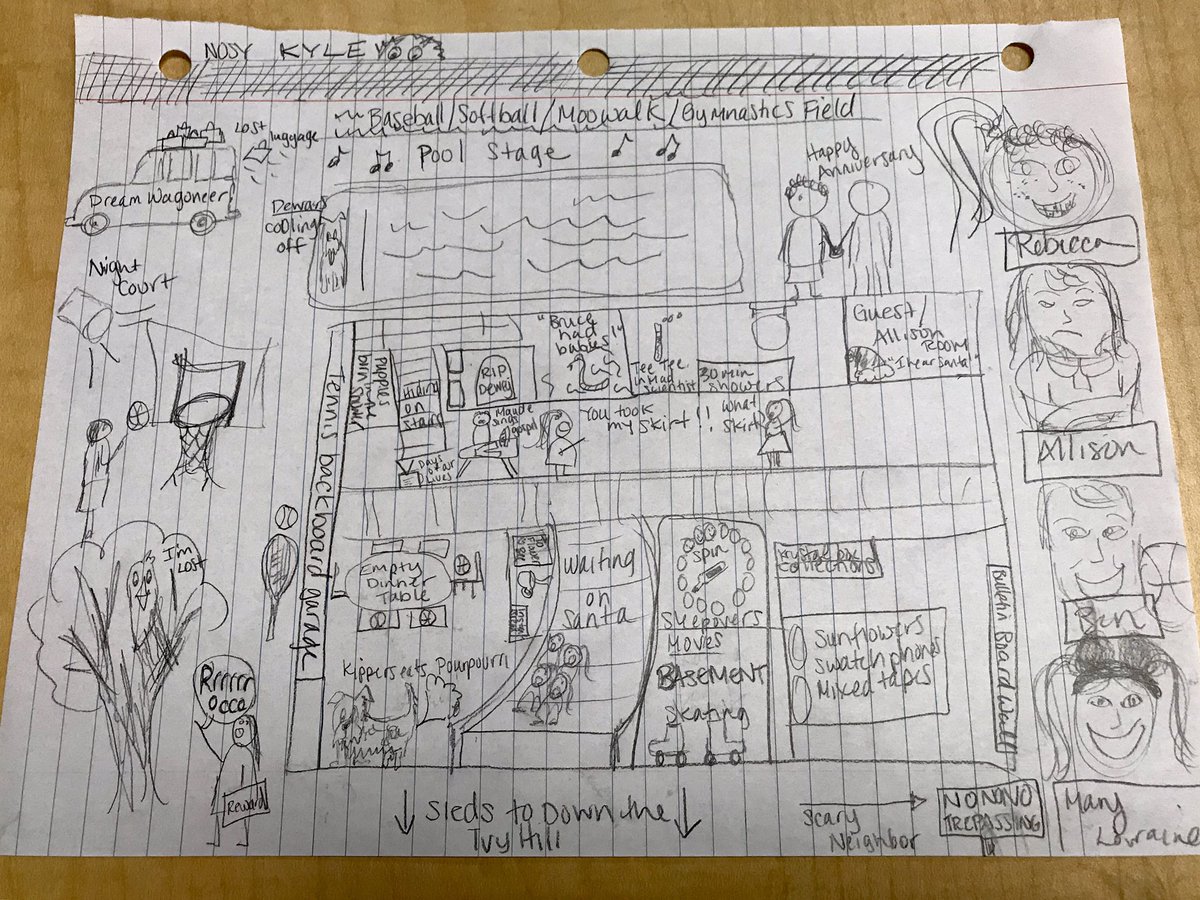 NOSY KYLE
Baseball/Softball/Moowalk/Gymnastics Field
Pool Stage
Lost
luggage
Dream Wagoneer
Dewars
cooling
off
Happy
Anniversary
Rebecca
Night
Court
Tennis backboard garage
Puppies
born
Hiding
on
stairs
RIP
Dewey
"Bruce
had
babies!"
Tee Tee
in Mad
Scientist
30 min
showers
Guest/
Allison
Room
"I hear Santa"
Allison
Maude
sings
gospel
You took
my skirt!!
What
skirt
Days
of our
Lives
I'm
Lost
Empty
Dinner
Table
Waiting
on
Santa
Spin
Sleepovers
Moves
BASEMENT
Skating
collections
Sunflowers
Swatch phones
Mixed tapes
Bulletin Board Wall
Ben
Kipper eats Pourpourri
Rrrrrr
occo
Reward
Sleds to Down the
Ivy Hill
Scary
Neighbor
NO NO NO
TREPASSING
Mary
Lorraine